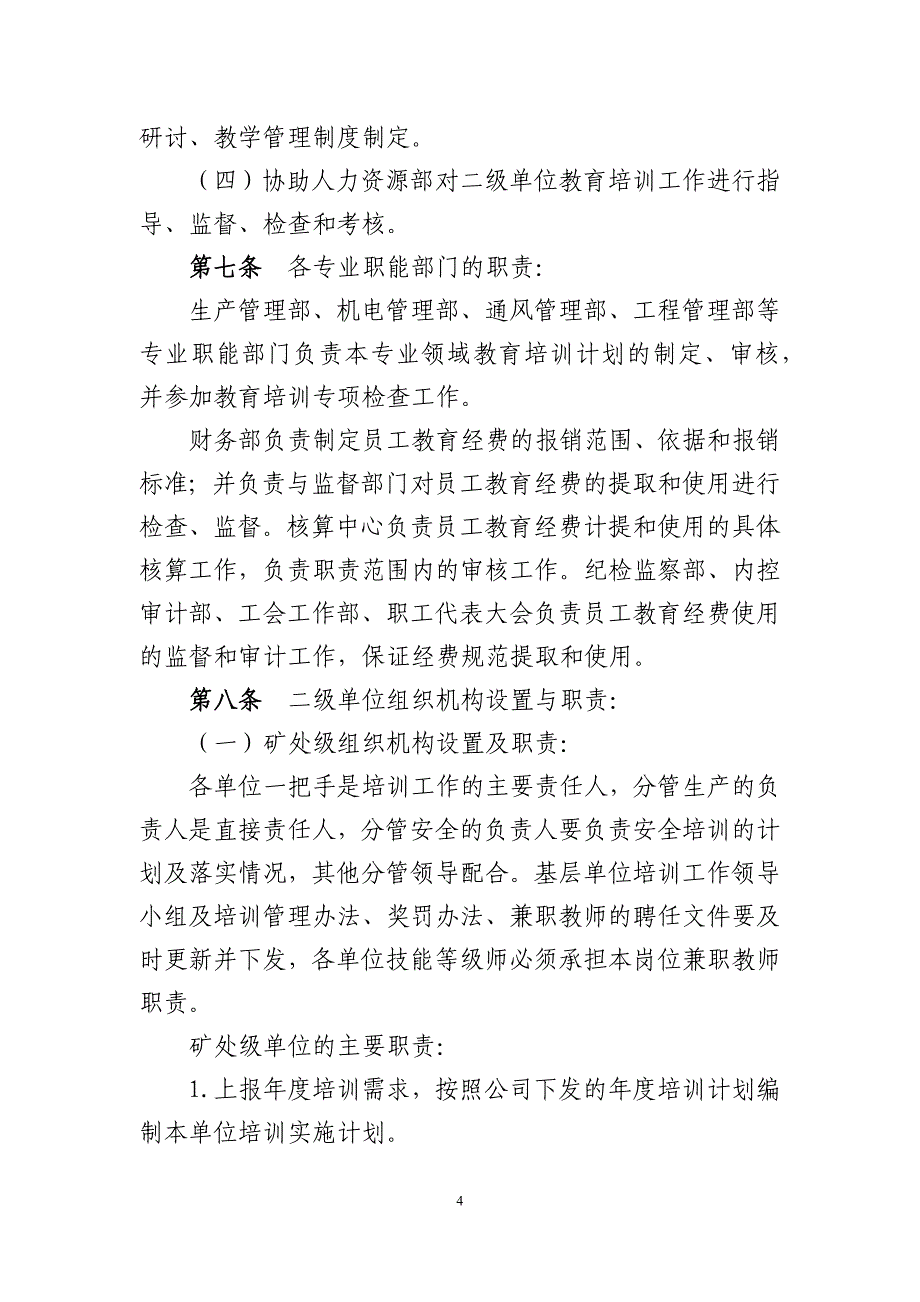 研讨、教学管理制度制定。
（四）协助人力资源部对二级单位教育培训工作进行指
导、监督、检查和考核。
第七条　各专业职能部门的职责：
生产管理部、机电管理部、通风管理部、工程管理部等
专业职能部门负责本专业领域教育培训计划的制定、审核，
并参加教育培训专项检查工作。
财务部负责制定员工教育经费的报销范围、依据和报销
标准；并负责与监督部门对员工教育经费的提取和使用进行
检查、监督。核算中心负责员工教育经费计提和使用的具体
核算工作，负责职责范围内的审核工作。纪检监察部、内控
审计部、工会工作部、职工代表大会负责员工教育经费使用
的监督和审计工作，保证经费规范提取和使用。
第八条　二级单位组织机构设置与职责：
（一）矿处级组织机构设置及职责：
各单位一把手是培训工作的主要责任人，分管生产的负
责人是直接责任人，分管安全的负责人要负责安全培训的计
划及落实情况，其他分管领导配合。基层单位培训工作领导
小组及培训管理办法、奖罚办法、兼职教师的聘任文件要及
时更新并下发，各单位技能等级师必须承担本岗位兼职教师
职责。
矿处级单位的主要职责：
1.上报年度培训需求，按照公司下发的年度培训计划编
制本单位培训实施计划。
4